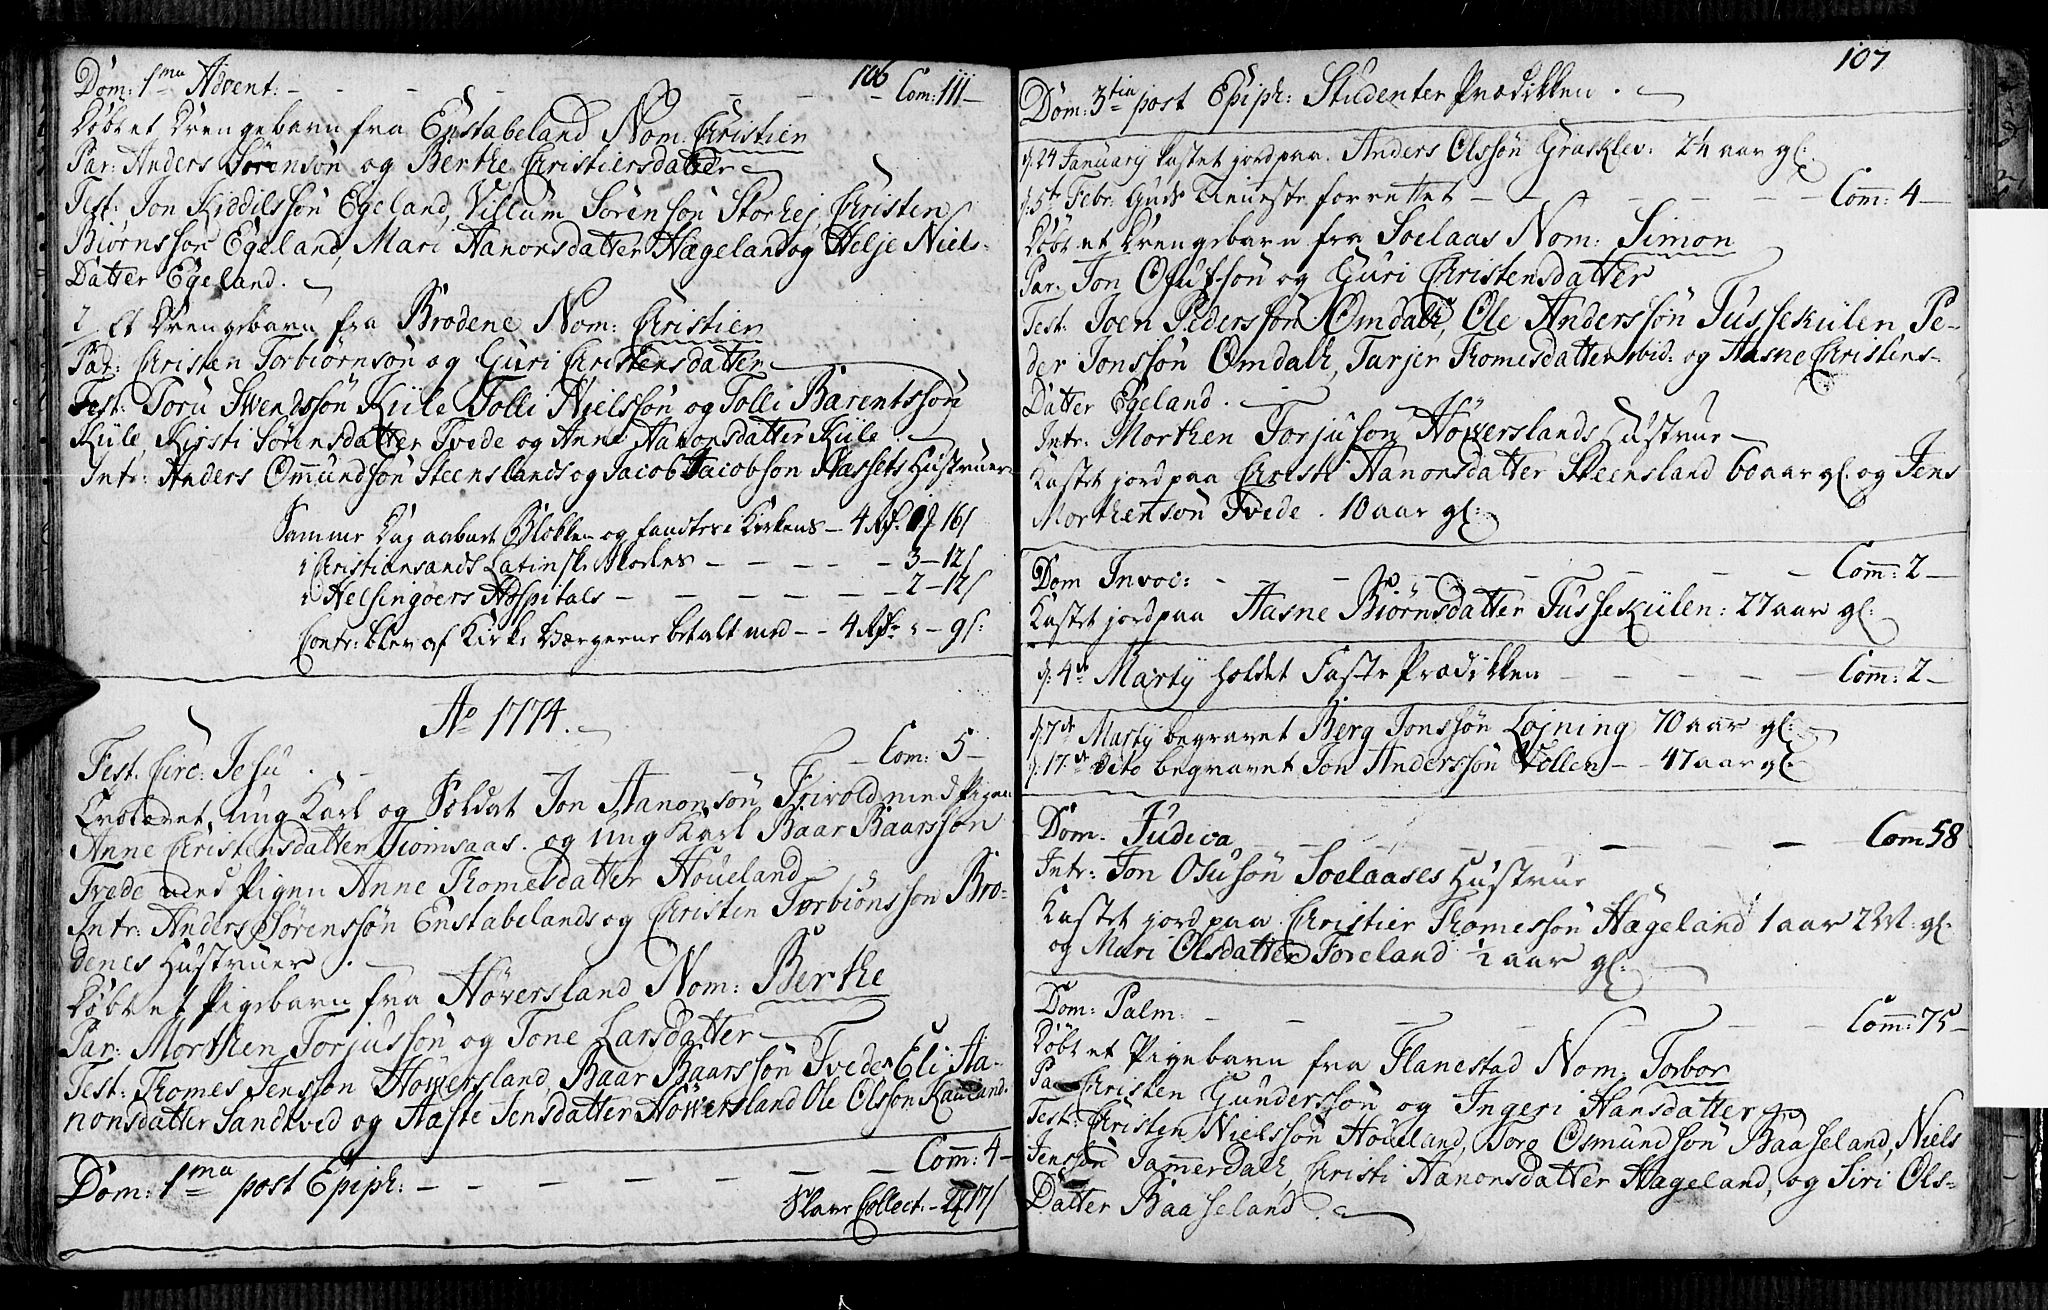 106
Dom: 1ma Advent: - - - - - - - Com: 111 -
Døbt et Drengebarn fra Enstabeland Nom. Christien
Par: Anders Sörensön og Berthe Christiersdatter
Test: Jon Kiddilssön Egeland, Villum Sörensön Storhej, Christen
Biörnssön Egeland, Mari Aanonsdatter Hægeland og Helje Niels-
Datter Egeland.
2. Et Drengebarn fra Brodene Nom: Christien
Par: Christen Torbiörnsön og Guri Christensdatter
Test: Toru Swendssön Kiile Tolli Nielssön og Tolli Barentssön
Kiile, Kirsti Sörensdatter Tvede og Anne Aanonsdatter Kiile.
Intr: Anders Omundsön Steenslands og Jacob Jacobson Aassets Hustruer
Samme Dag aabnet Blokken og fandtes i Kirkens - 4 16 s
i Christiansands Latinske Skoeles - - - - - 3 - 12 s
i Helsingøers Hospitals - - - - - - 2 - 12 s
blev af Kirke Værgerne betalt med - - 4 - 9 s:
Ao 1774.
Fest: Circ: Jesu. - - - - - Com: 5 -
Trolovet, ung Karl og Soldat Jon Aanonsön Frivold med Pigen
Anne Christensdatter Tiomsaas. og ung Karl Baar Baarssön
Tvede med Pigen Anne Thomesdatter Houeland
Intr: Anders Sörenssön Enstabelands og Christen Torbiönsson Bro-
denes Hustruer.
Døbt et Pigebarn fra Höversland Nom: Berthe
Par: Morthen Torjussön og Tone Larsdatter
Test: Thomes Jenssön Höwersland, Baar Baarssön Tvede, Eli Aa-
nonsdatter Sandtved og Aaste Jensdatter Höwersland Ole Olsson Kaaland.
Dom: 1ma post Epiph: - - - - - - - Com: 4 -
Slave Collect: - 17 s
107
Dom: 3tia post Epiph: Studenter Prædikken.
d: 24 January kastet jord paa. Anders Olssön Grasklev: 24 aar gl:
d: 5te Febr: Guds Tieneste forrettet - - - - - - Com: 4 -
Døbt et Drengebarn fra Soelaas Nom: Simon
Par: Jon Osulfsön og Guri Christensdatter
Test: Joen Pederssön Omdalh, Ole Anderssön Tussekiilen, Pe-
der Jonssön Omdalh, Tarjer Thomesdatter ibid: og Aasne Christens-
Datter Egeland.
Intr: Morthen Torjuson Höwerslands Hustrue
Kastet jord paa Christi Aanonsdatter Steensland 60 aar gl. og Jens
Morthensön Tvede. 10 aar gl:
Dom Invoc: - - - - - - - Com: 2 -
Kastet jord paa Aasne Biörnsdatter Tussekiilen: 27 aar gl:
d: 4de Marty holdet Faste Prædikken - - - - - Com: 2 -
d: 7de Marty begravet Berg Jonssön Lojning 70 aar gl:
d: 17de dito begravet Jon Anderssön Vollen - - 47 aar gl:
Dom. Judica - - - - - - - Com 58
Intr: Jon Osusön Soelaases Hustrue
Kastet jord paa. Christier Thomessön Hægeland 1 aar gl.
og Mari Olsdatter Foreland ½ aar gl:
Dom: Palm: - - - - - - - Com: 75 -
Døbt et Pigebarn fra Flanestad Nom: Torbor
Pa Christen Gunderssön og Ingeri Hansdatter
Test: Christen Nielssön Houeland, Torg Osmundsön Baaseland, Niels
Jenssön Tamerdalh, Christi Aanonsdatter Hageland, og Siri Ols-
Datter Baaseland.